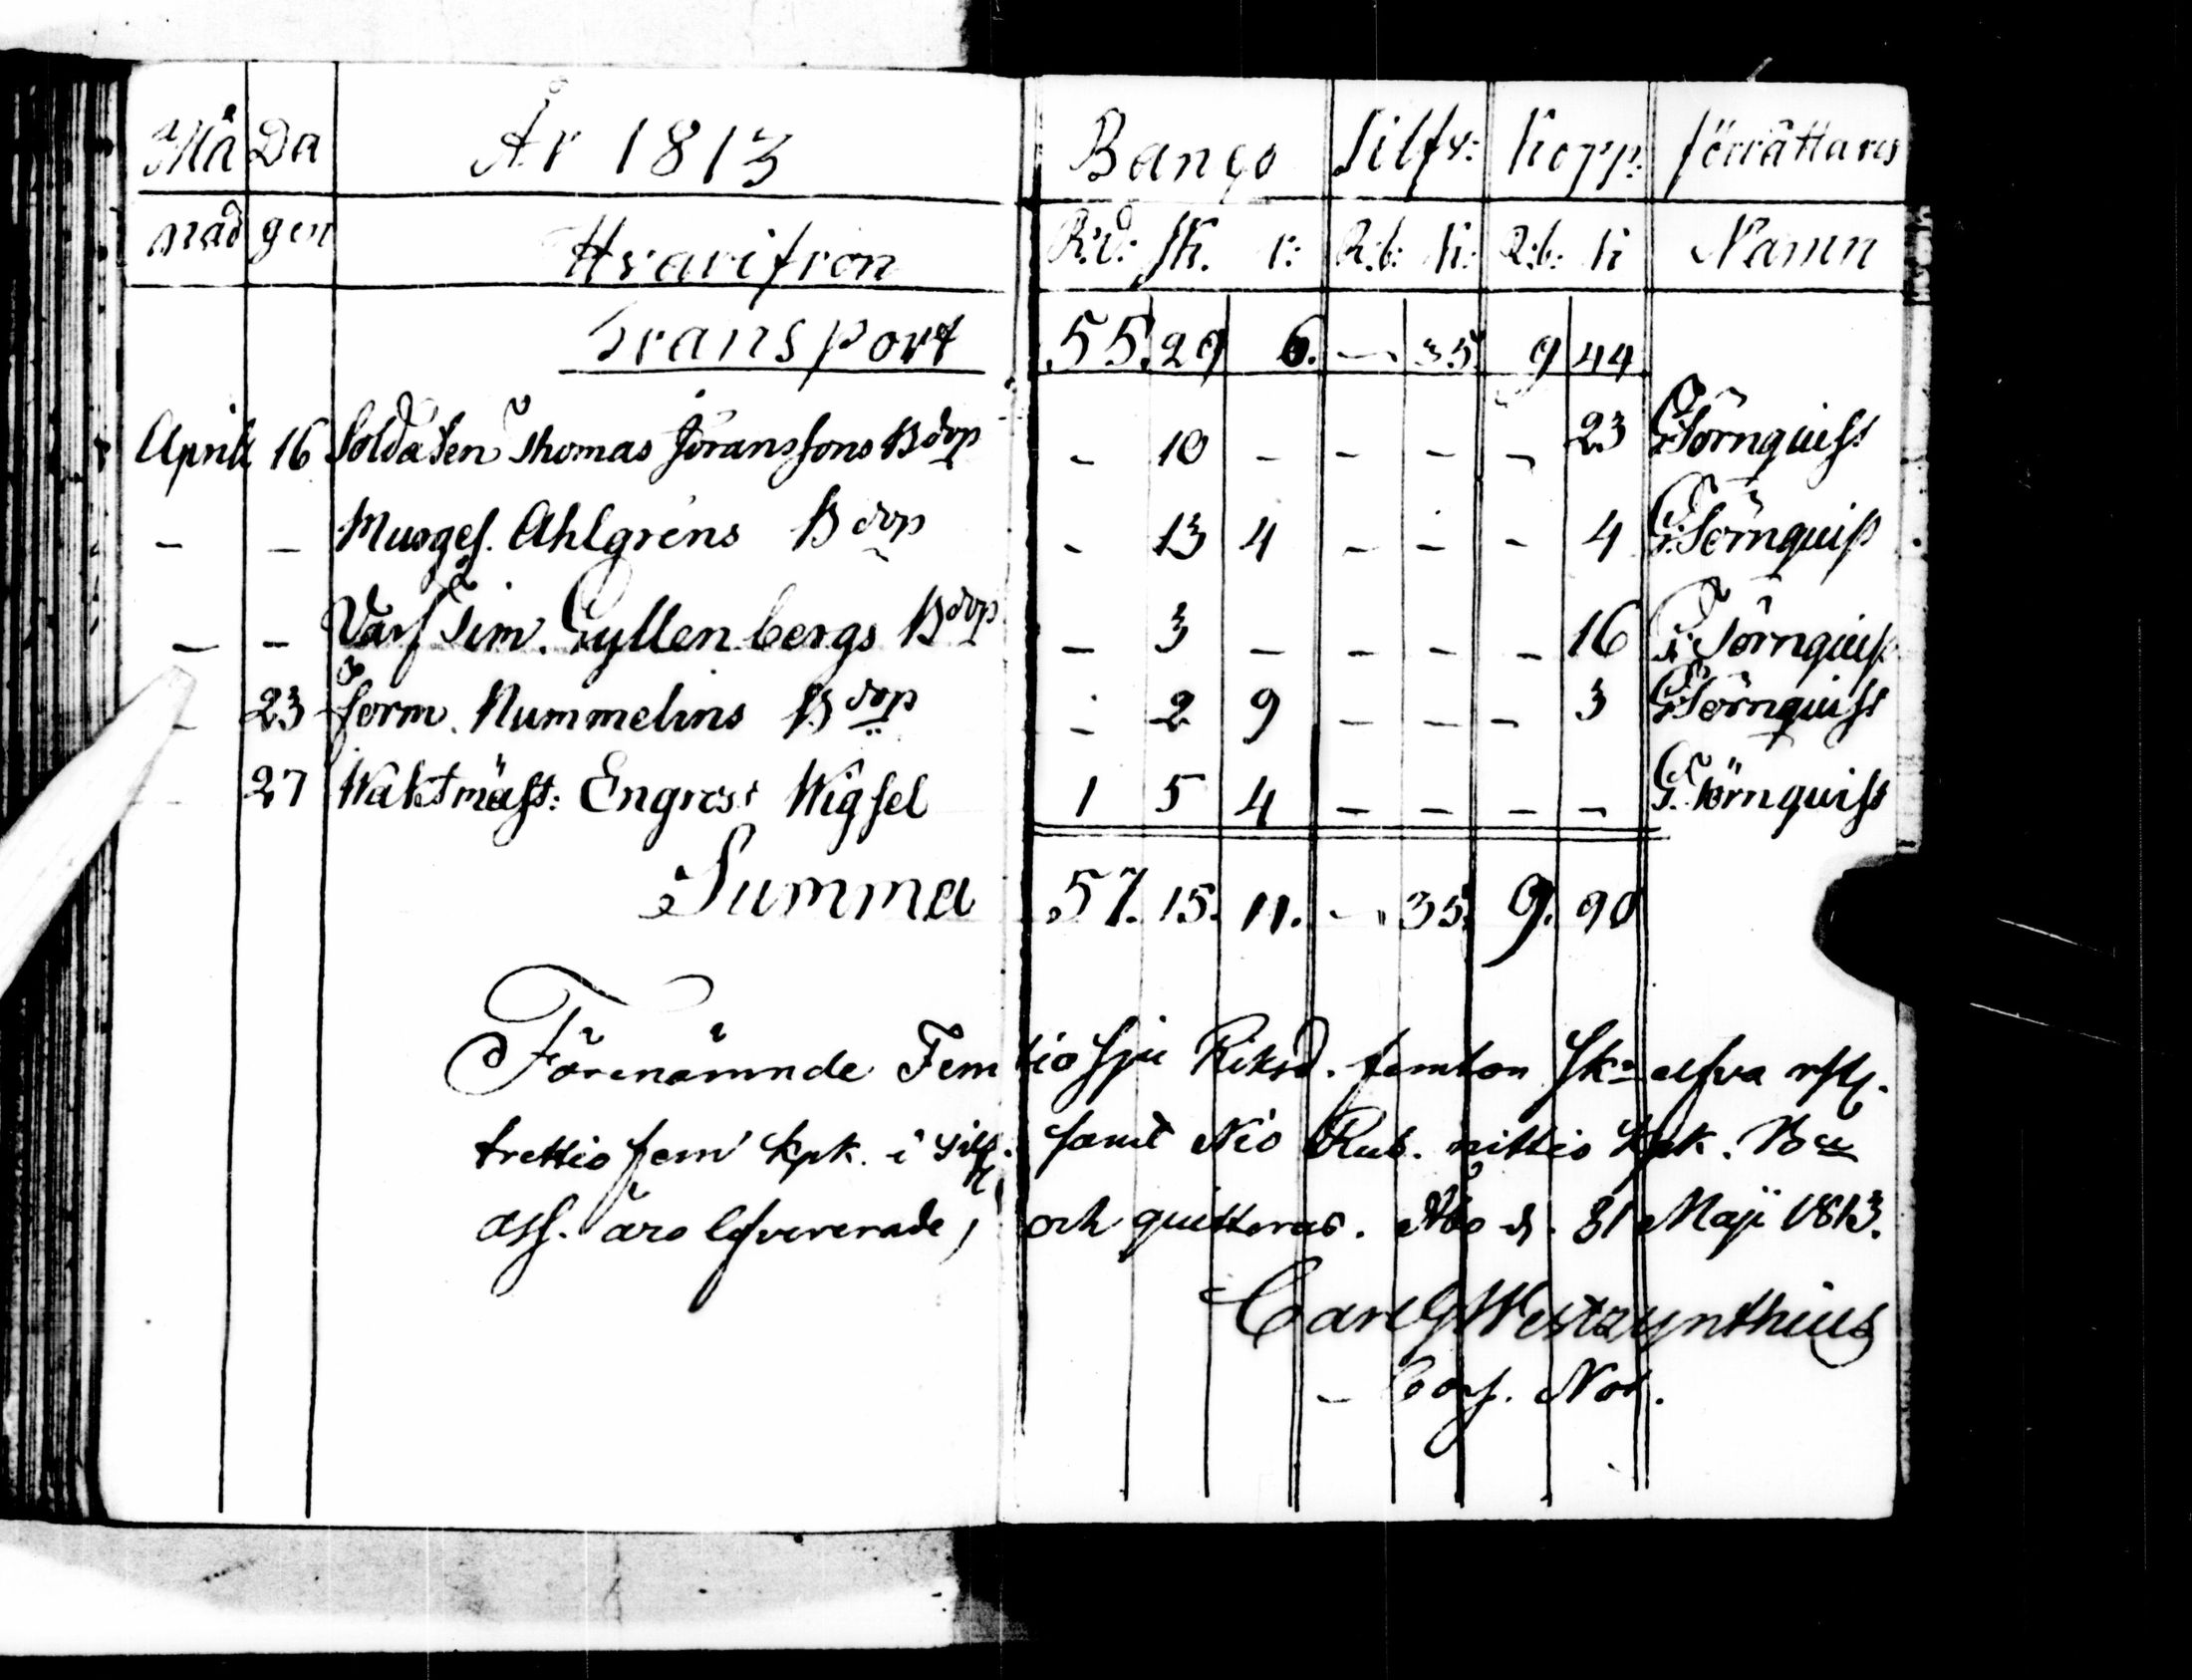 Må Da År 1813 Banco Silfv: Kopp: förrättares
nad gen Hvarifrån R:d: sk. r: R:b: k: R:b: k Namn
Transport 55. 29 6. — 35 9 44
April 16 Soldaten Thomas Göranssons Bdop - 10 - - - - 23 G. Törnquist
- - Murges. Ahlgréns Bdop - 13 4 - - - 4 G. Törnquist
- - Varf Tim. Gyllenbergs Bdop - 3 - - - - 16 G. Törnquist
- 23 form. Nummelins Bdop - 2 9 - - - 3 G. Törnquist
- 27 Waktmäst: Engros: Wigsel 1 5 4 - - - - G. Törnquist
Summa 57. 15. 11. — 35. 9. 90
Förenämnde Femtio sju Riksd. femton sk. elfva rst.
trettio fem kpk. i Silf. samt Nio Rub. nittio kpk. Bco
ass. äro lefvererade, och quitteras. Åbo d. 31 Maji 1813.
Carl G Westzynthius
Cons. Not.